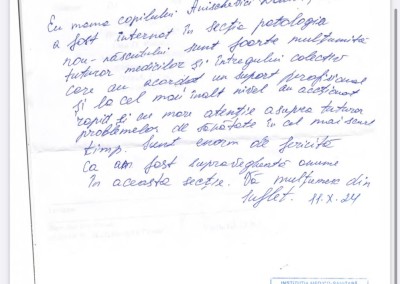 Eu mama copilului Anisch
a fost internat în secția patologia
nou-născutului sunt foarte mulțumită
tuturor medicilor și întregului colectiv
care au acordat un suport profesional
și la cel mai înalt nivel au acționat
rapid și cu mare atenție asupra tuturor
problemelor de sănătate în cel mai scurt
timp. Sunt enorm de fericită
ca am fost supravegheată anume
în aceasta secție. Vă mulțumesc din
suflet. 11.X.24